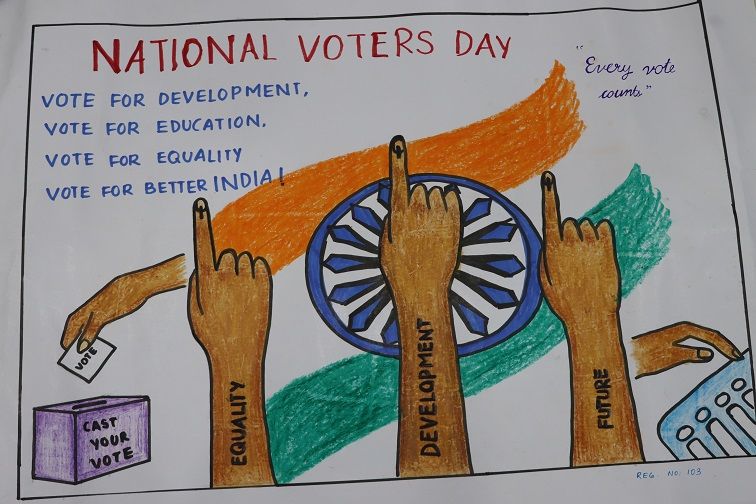 NATIONAL VOTERS DAY
"Every vote
counts"
VOTE FOR DEVELOPMENT,
VOTE FOR EDUCATION.
VOTE FOR EQUALITY
VOTE FOR BETTER INDIA!
VOTE
CAST
YOUR
VOTE
EQUALITY
DEVELOPMENT
FUTURE
REG. NO: 103